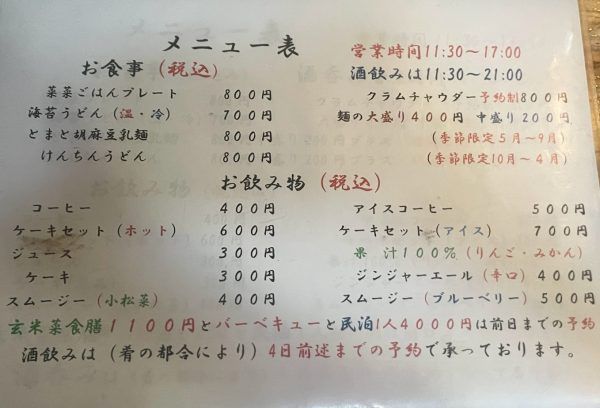 メニュー表
営業時間11:30～17:00
お食事（税込）
酒飲みは11:30～21:00
菜菜ごはんプレート 800円
クラムチャウダー予約制800円
海苔うどん（温・冷） 700円
麺の大盛り400円 中盛り200円
とまと胡麻豆乳麺 800円
（季節限定5月～9月）
けんちんうどん 800円
（季節限定10月～4月）
お飲み物（税込）
コーヒー 400円
アイスコーヒー 500円
ケーキセット（ホット） 600円
ケーキセット（アイス） 700円
ジュース 300円
果汁100%（りんご・みかん）
ケーキ 300円
ジンジャーエール（辛口）400円
スムージー（小松菜） 400円
スムージー（ブルーベリー）500円
玄米菜食膳1100円とバーベキューと民泊1人4000円は前日までの予約
酒飲みは（肴の都合により）4日前述までの予約で承っております。